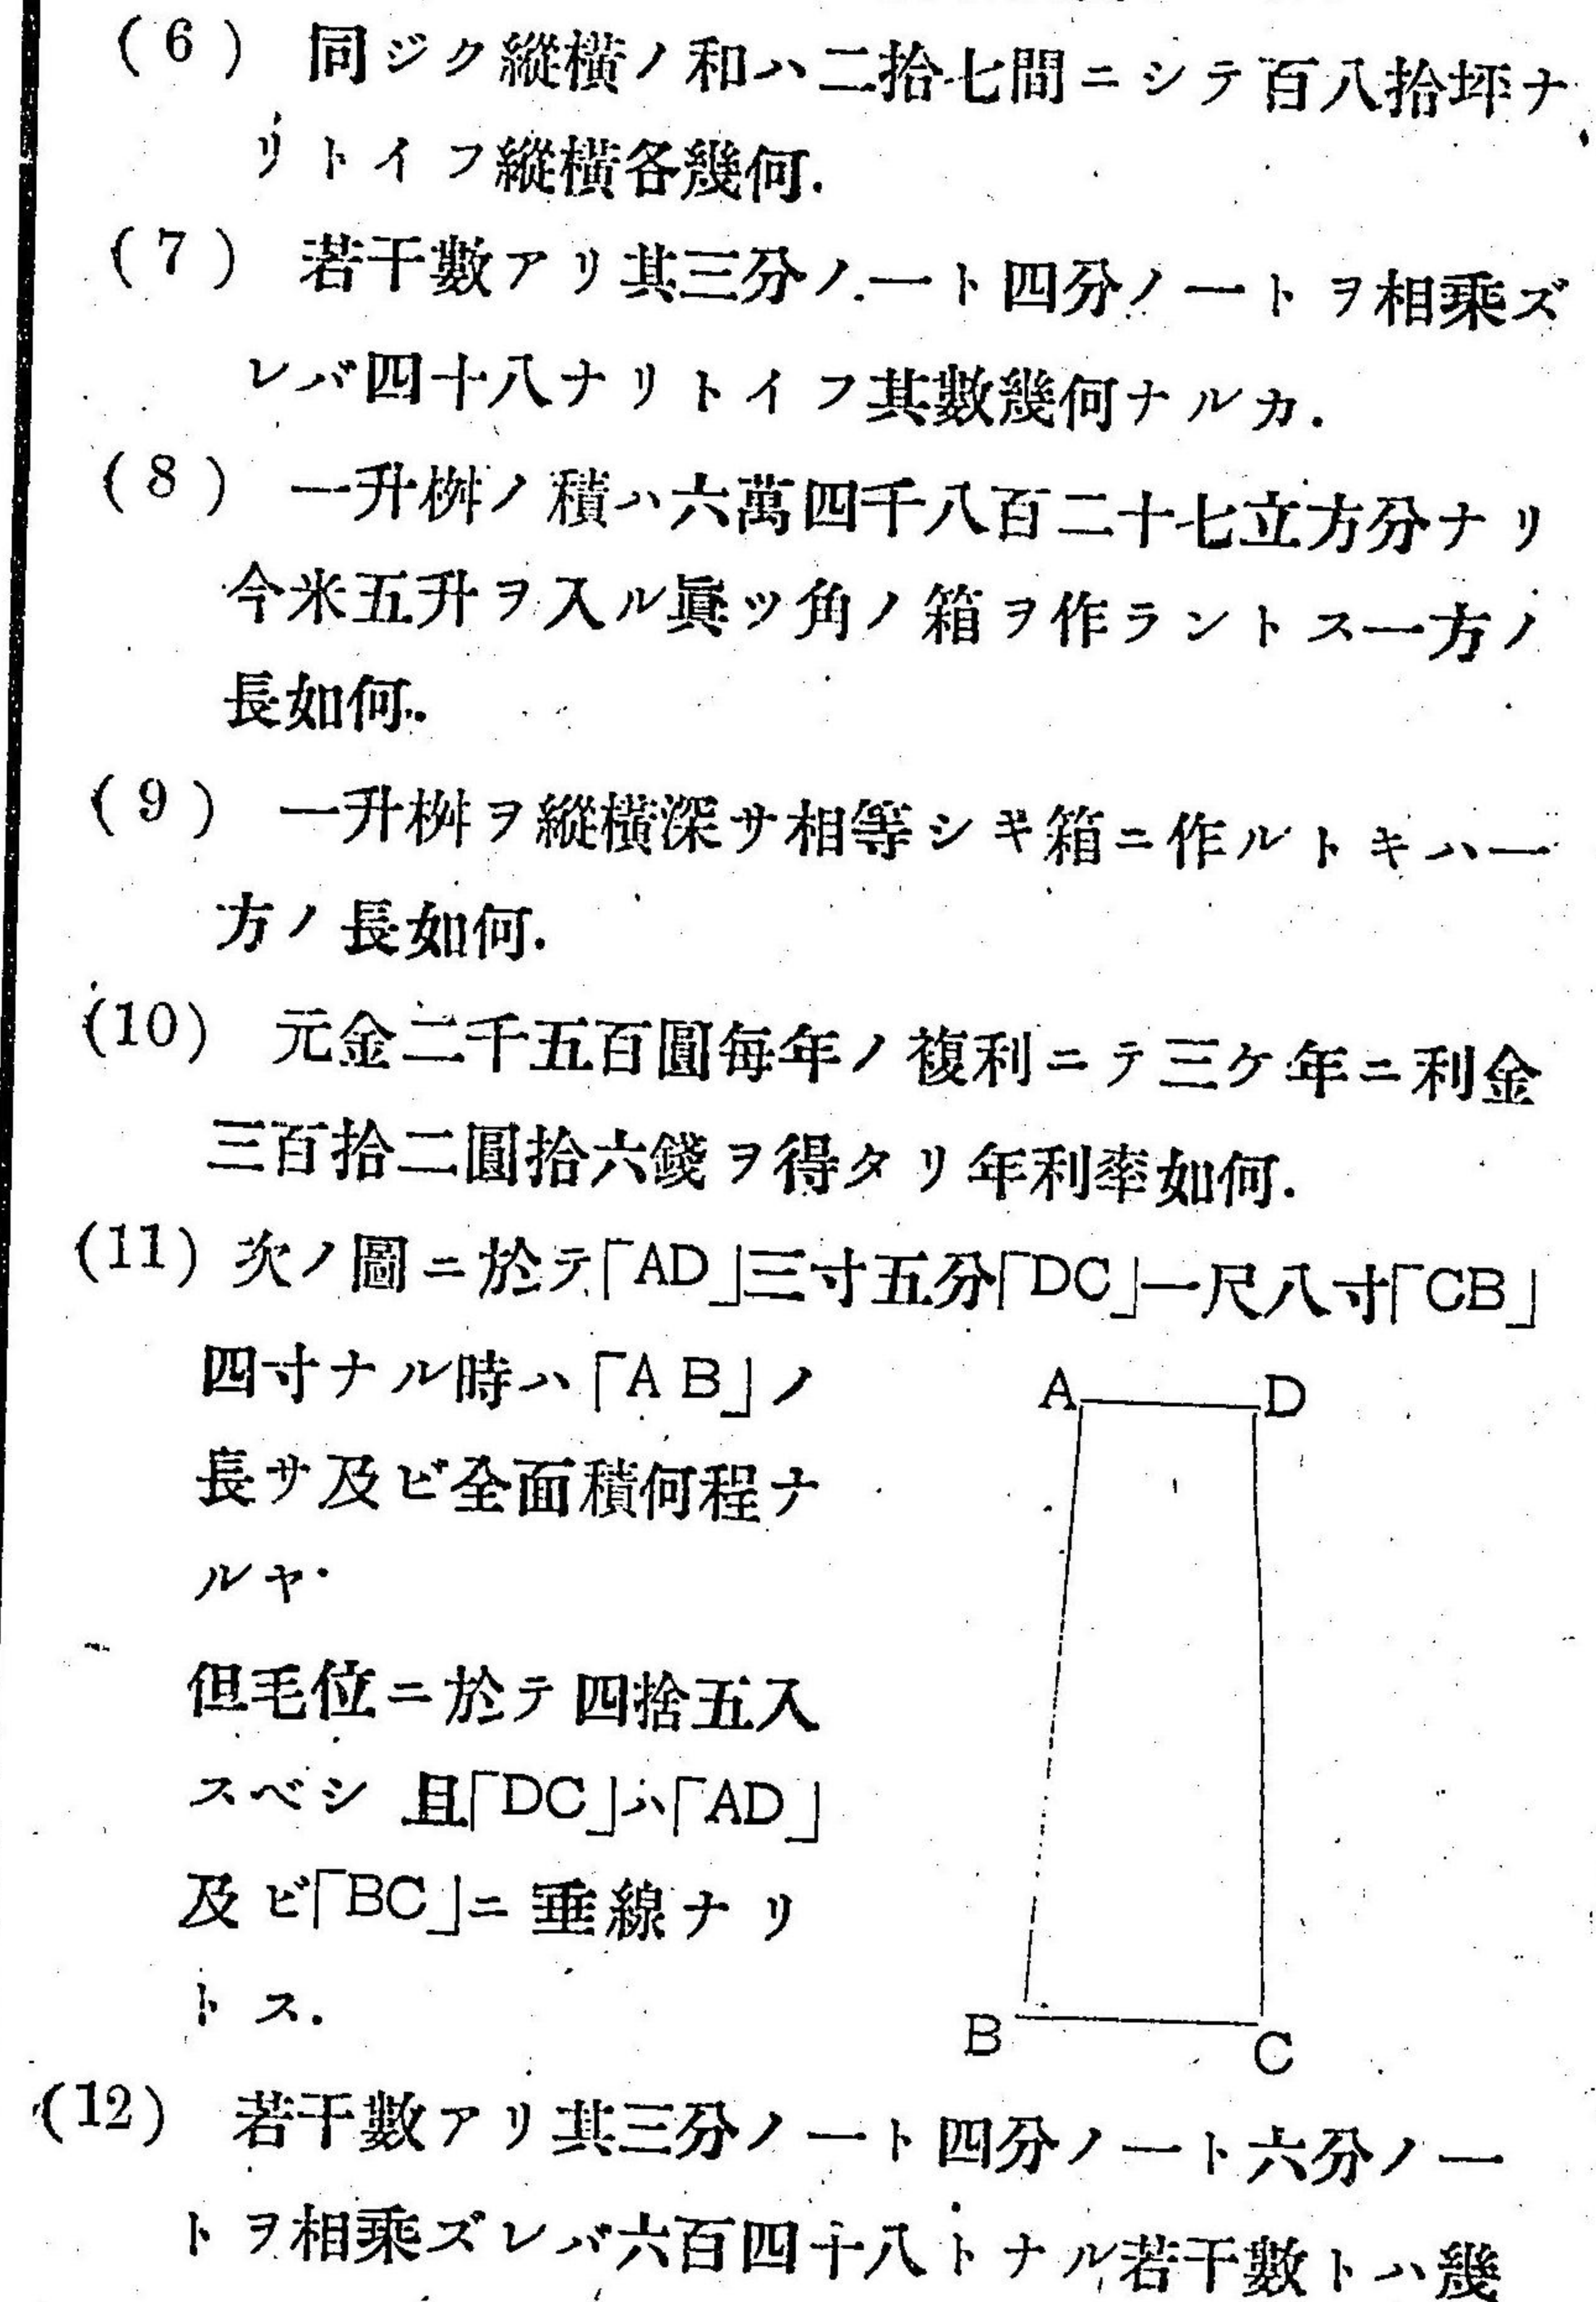 (6) 同ジク縱橫ノ和ハ二拾七間ニシテ百八拾坪ナ
リトイフ縱橫各幾何.
(7) 若干數アリ其三分ノ一ト四分ノ一トヲ相乘ズ
レバ四十八ナリトイフ其數幾何ナルカ.
(8) 一升桝ノ積ハ六萬四千八百二十七立方分ナリ
今米五升ヲ入ル眞ツ角ノ箱ヲ作ラントス一方ノ
長如何.
(9) 一升桝ヲ縱橫深サ相等シキ箱ニ作ルトキハ一
方ノ長如何.
(10) 元金二千五百圓每年ノ複利ニテ三ケ年ニ利金
三百拾二圓拾六錢ヲ得タリ年利率如何.
(11) 次ノ圖ニ於テ「AD」三寸五分「DC」一尺八寸「CB」
四寸ナル時ハ「AB」ノ
長サ及ビ全面積何程ナ
ルヤ.
但毛位ニ於テ四捨五入
スベシ 且「DC」ハ「AD」
及ビ「BC」ニ垂線ナリ
トス.
A D
B C
(12) 若干數アリ其三分ノ一ト四分ノ一ト六分ノ一
トヲ相乘ズレバ六百四十八トナル若干數トハ幾